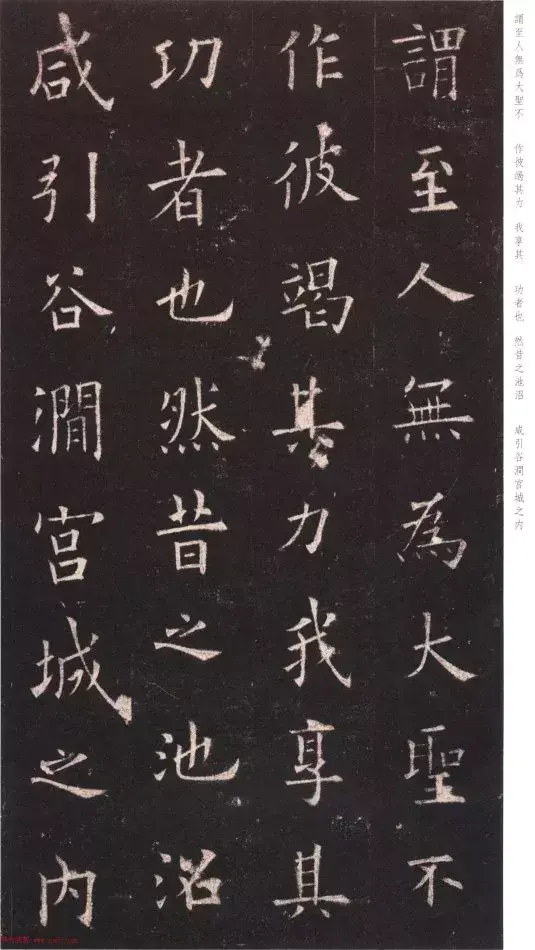 謂至人無為大聖不
作彼竭其力我享其
功者也然昔之池沼
咸引谷澗宮城之内
謂至人無爲大聖不 作彼竭其力 我享其 功者也 然昔之池沼 咸引谷澗宮城之内